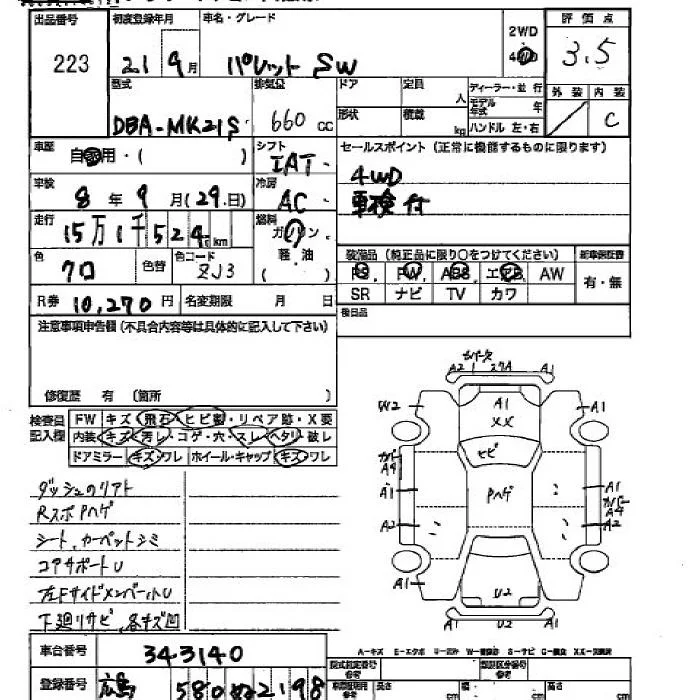 出品番号 初度登録年月 車名・グレード 2WD 4WD 評価点
223 21 9月 パレット SW 3.5
型式 排気量 ドア 定員 人 ディーラー・並行 外装 内装
DBA-MK21S 660 cc 形状 積載 kg モデル年式 年 ハンドル 左・右 C
車歴 自家用・( ) シフト IAT セールスポイント(正常に機能するものに限ります)
車検 8年 9月(29日) 冷房 AC 4WD
走行 15万1千524km 燃料 ガソリン 軽油 ( ) 車検付
色 クロ 色替 色コード ZJ3 装備品(純正品に限り〇をつけてください) 新車保証書
PS, PW, ABS, エアB, AW 有・無
R券 10,270円 名変期限 月 日 SR ナビ TV カワ
注意事項申告欄(不具合内容等は具体的に記入して下さい) 後日品
修復歴 有 (箇所 )
検査員記入欄 FW キズ・飛石・ヒビ割・リペア跡・X要
内装 キズ・汚レ・コゲ・穴・スレ・ヘタリ・破レ
ドアミラー キズ・ワレ ホイール・キャップ キズ・ワレ
カバー欠
A2 27A A1
W2 A1 A1
XX
ヒビ
カバー A4
A1 Pハゲ A1 カバー A4
A2 A2
A1 U2
A2 U2 A1
ダッシュのリアト
RスポPハゲ
シート、カーペットシミ
コアサポートU
左FサイドメンバールU
下廻リサビ、各キズ凹
A-キズ E-エクボ U-凹み W-補修跡 S-サビ C-腐食 XX-交換済
車台番号 343140 型式指定番号 類別区分番号
登録番号 広島 580 2198 長さ cm 幅 cm 高さ cm